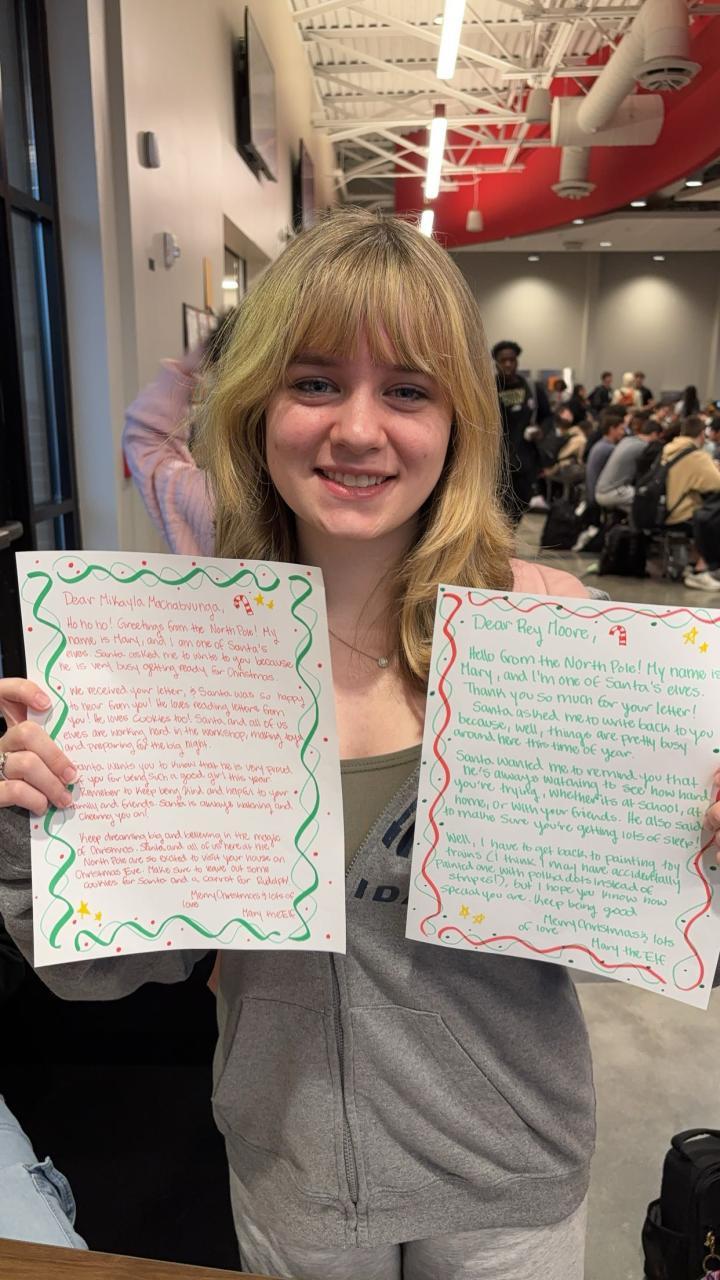 Dear Mikayla Machabvunga,
Ho ho ho! Greetings from the North Pole! My
name is Mary, and I am one of Santa's
elves. Santa asked me to write to you because
he is very busy getting ready for Christmas.
We received your letter, & Santa was so happy
to hear from you! He loves reading letters from
you! He loves cookies too! Santa and all of us
elves are working hard in the workshop, making toys
and preparing for the big night.
Santa wants you to know that he is very proud
of you for being such a good girl this year.
Remember to keep being kind and helpful to your
family and friends. Santa is always watching and
cheering you on!
Keep dreaming big and believing in the magic
of Christmas. Santa and all of us here at the
North Pole are so excited to visit your house on
Christmas Eve. Make sure to leave out some
cookies for Santa and a carrot for Rudolph!
Merry Christmas & lots of
love
Mary the Elf
Dear Rey Moore,
Hello from the North Pole! My name is
Mary, and I'm one of Santa's elves.
Thank you so much for your letter!
Santa asked me to write back to you
because, well, things are pretty busy
around here this time of year.
Santa wanted me to remind you that
he's always watching to see how hard
you're trying, whether it's at school, at
home, or with your friends. He also said
to make sure you're getting lots of sleep!
Well, I have to get back to painting toy
trains (I think I may have accidentally
painted one with polka dots instead of
stripes!), but I hope you know how
special you are. Keep being good
Merry Christmas & lots
of love
Mary the Elf
ID